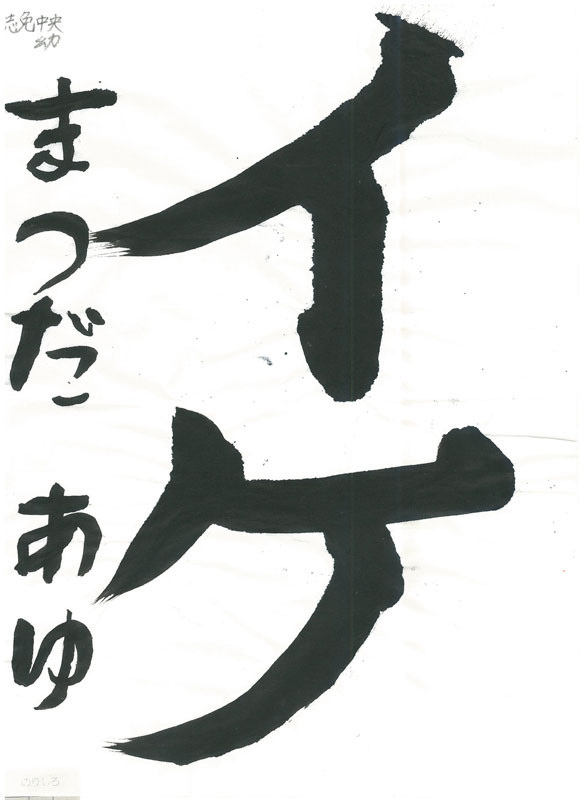 イケ
志免中央
幼
まつだ あゆ
のりしろ